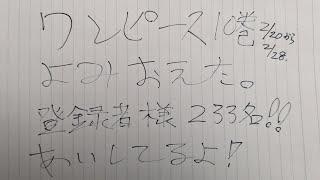 ワンピース10巻 2/20から
2/28.
よみおえた。
登録者様 233名!!
あいしてるよ!